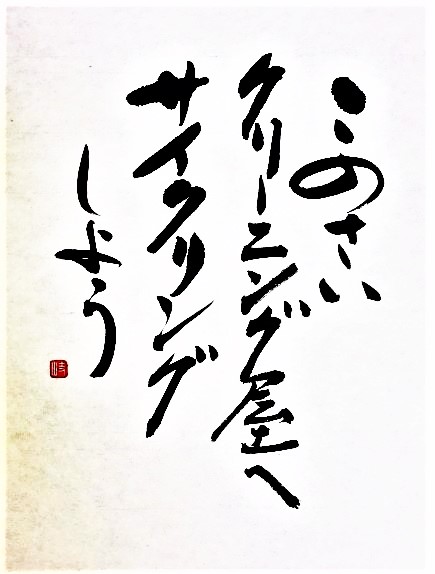 このさい
クリーニング屋へ
サイクリング
しよう